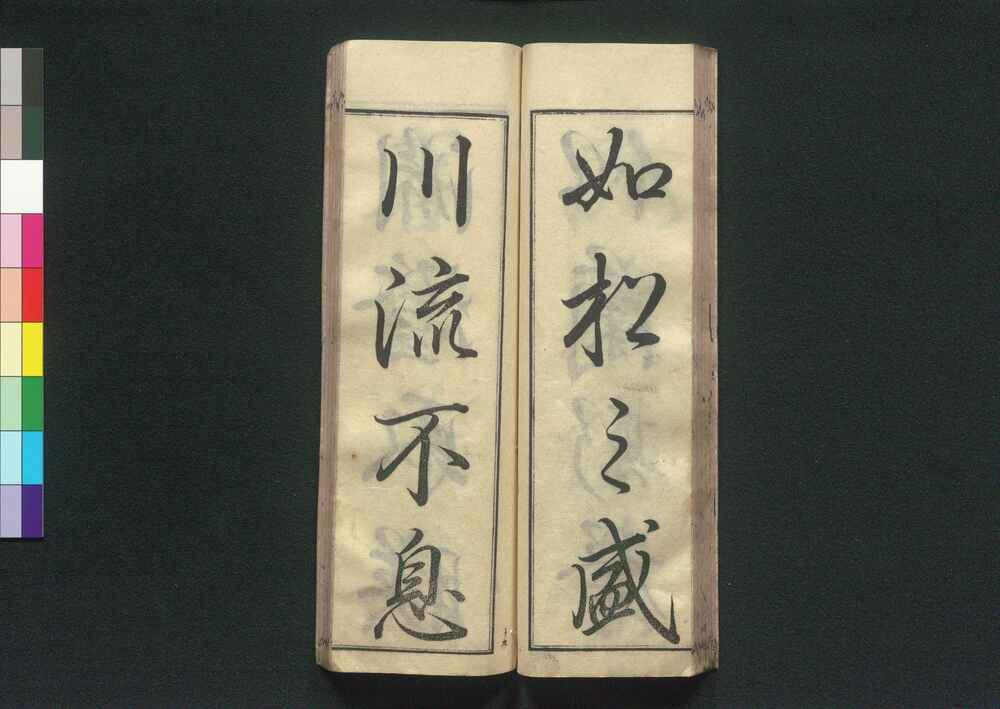 如松之盛
川流不息